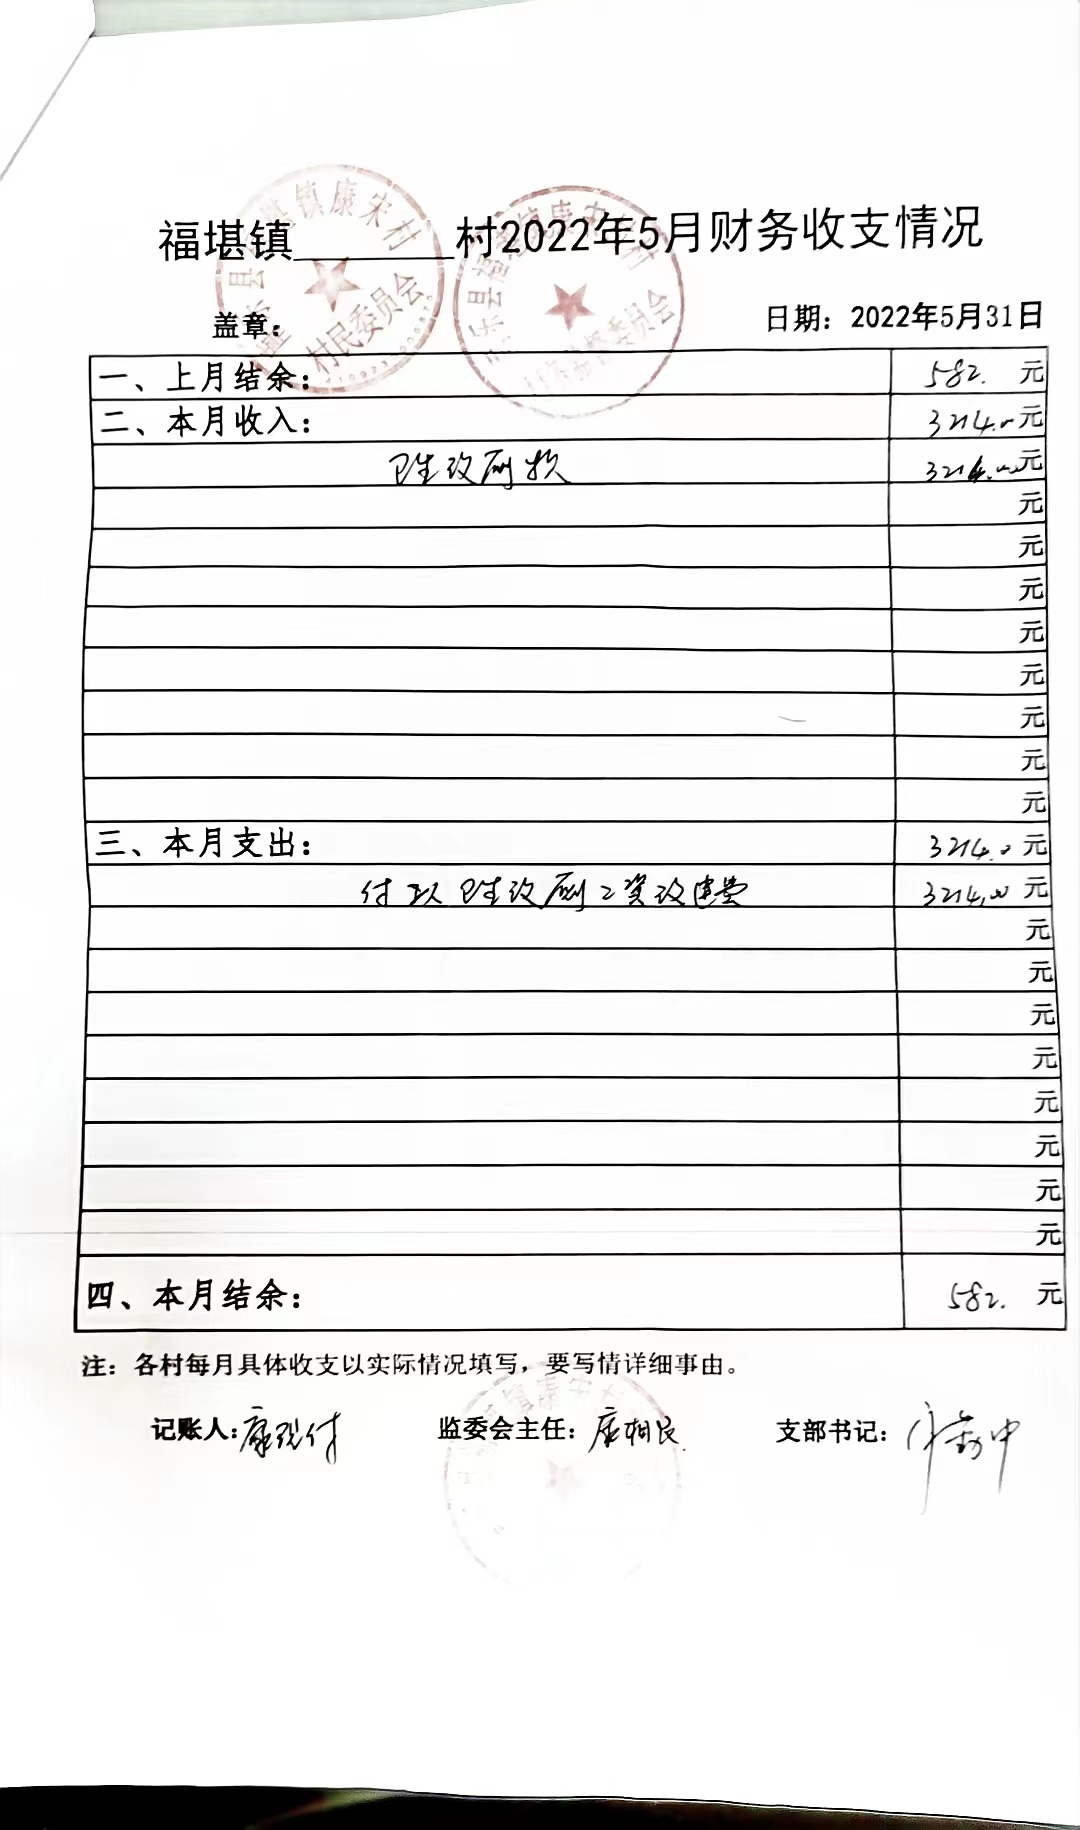 福堪镇________村2022年5月财务收支情况
盖章：
镇康宋村
村民委员会
日期：2022年5月31日
一、上月结余： 582. 元
二、本月收入： 3214.0元
卫生改厕款 3214.00元
元
元
元
元
元
元
元
元
三、本月支出： 3214.0元
付 卫生改厕工资改建费 3214.00元
元
元
元
元
元
元
元
元
四、本月结余： 582. 元
注：各村每月具体收支以实际情况填写，要写情详细事由。
记账人： 监委会主任：康相良 支部书记：